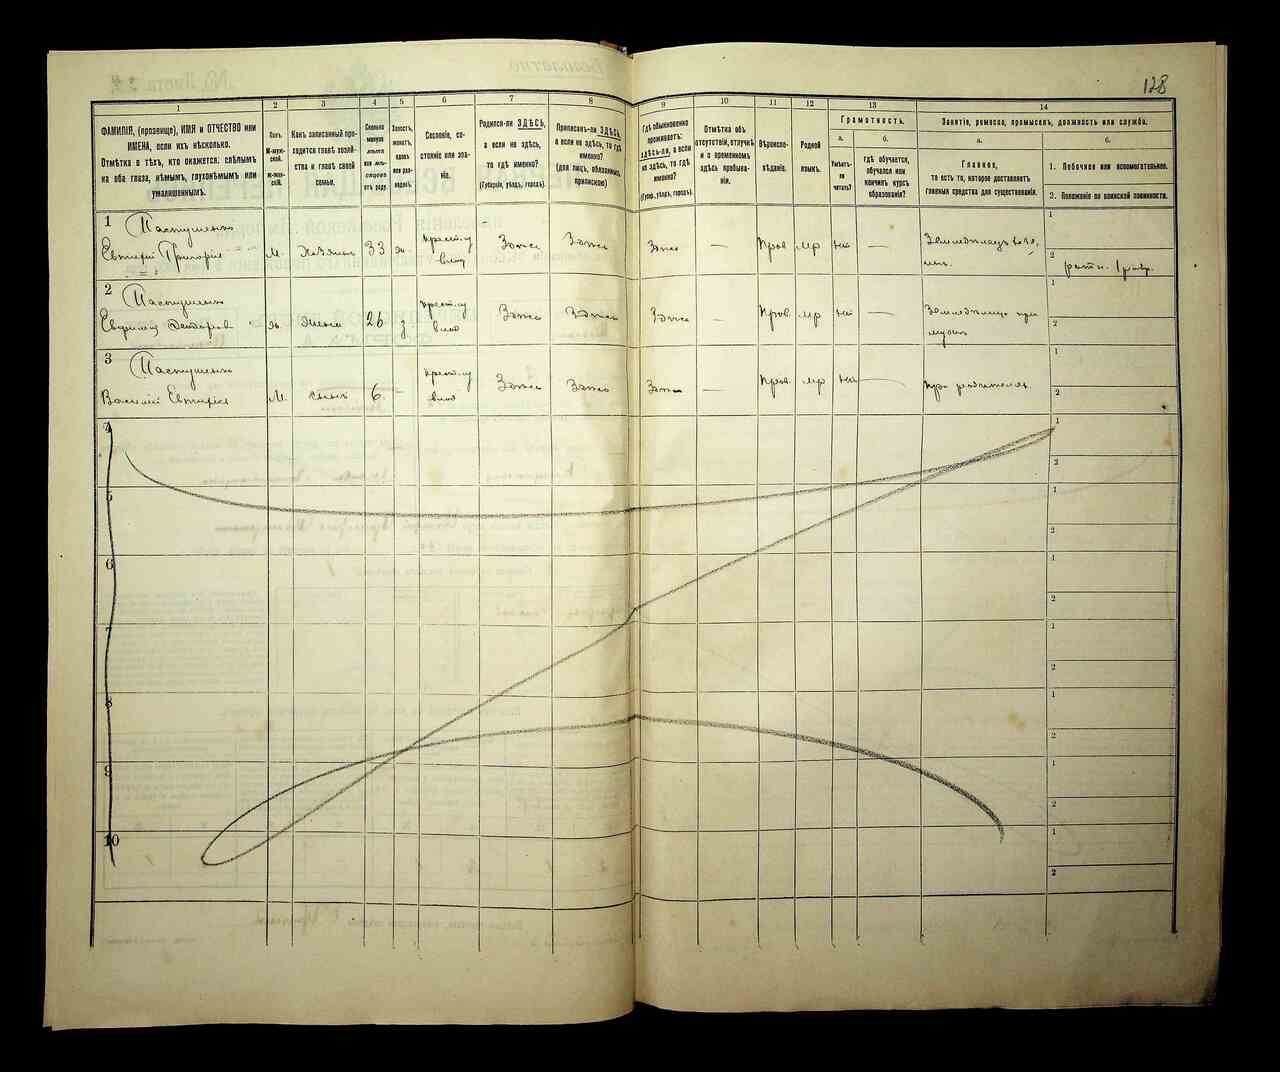 128
1
2
3
4
5
6
7
8
9
10
11
12
13
14
ФАМИЛІЯ, (прозвище), ИМЯ и ОТЧЕСТВО или
ИМЕНА, если ихъ нѣсколько.
Отмѣтка о тѣхъ, кто окажется: слѣпымъ
на оба глаза, нѣмымъ, глухонѣмымъ или
умалишеннымъ.
Полъ.
М-муж-
ской.
Ж-жен-
скій.
Какъ записанный при-
ходится главѣ хозяй-
ства и главѣ своей
семьи.
Сколько
минуло
лѣтъ
или мѣ-
сяцевъ
отъ роду.
Холостъ,
женатъ,
вдовъ
или раз-
веденъ.
Сословіе, со-
стояніе или зва-
ніе.
Родился-ли ЗДѢСЬ,
а если не здѣсь,
то гдѣ именно?
(Губернія, уѣздъ, городъ).
Приписанъ-ли ЗДѢСЬ,
а если не здѣсь, то гдѣ
именно?
(для лицъ, обязанныхъ
припискою)
Гдѣ обыкновенно
проживаетъ:
здѣсь-ли, а если
не здѣсь, то гдѣ
именно?
(Губер., уѣздъ, городъ).
Отмѣтка объ
отсутствіи, отлучкѣ
и о временномъ
здѣсь пребыва-
ніи.
Вѣроиспо-
вѣданіе.
Родной
языкъ.
Грамотность.
а.
Умѣетъ-
ли
читать?
б.
гдѣ обучается,
обучался или
кончилъ курсъ
образованія?
Занятіе, ремесло, промыселъ, должность или служба.
а.
Главное,
то есть то, которое доставляетъ
главныя средства для существованія.
б.
1. Побочное или вспомогательное.
2. Положеніе по воинской повинности.
1
Пастушенко
Евтихій Григорія
М.
Хозяинъ
33
ж.
Здѣсь
Здѣсь
Здѣсь
—
Прав.
мр
нѣ
—
1
2
ратн. 1 разр.
2
Пастушенко
ж.
Жена
26
з
Здѣсь
Здѣсь
Здѣсь
—
Прав.
мр
нѣ
—
Земледѣлица при
мужѣ
1
2
3
Пастушенко
Василій Евтихія
М.
сынъ
6
—
Здѣсь
Здѣсь
Здѣсь
—
Прав.
мр
нѣ
—
при родителяхъ
1
2
4
1
2
5
1
2
6
1
2
7
1
2
8
1
2
9
1
2
10
1
2